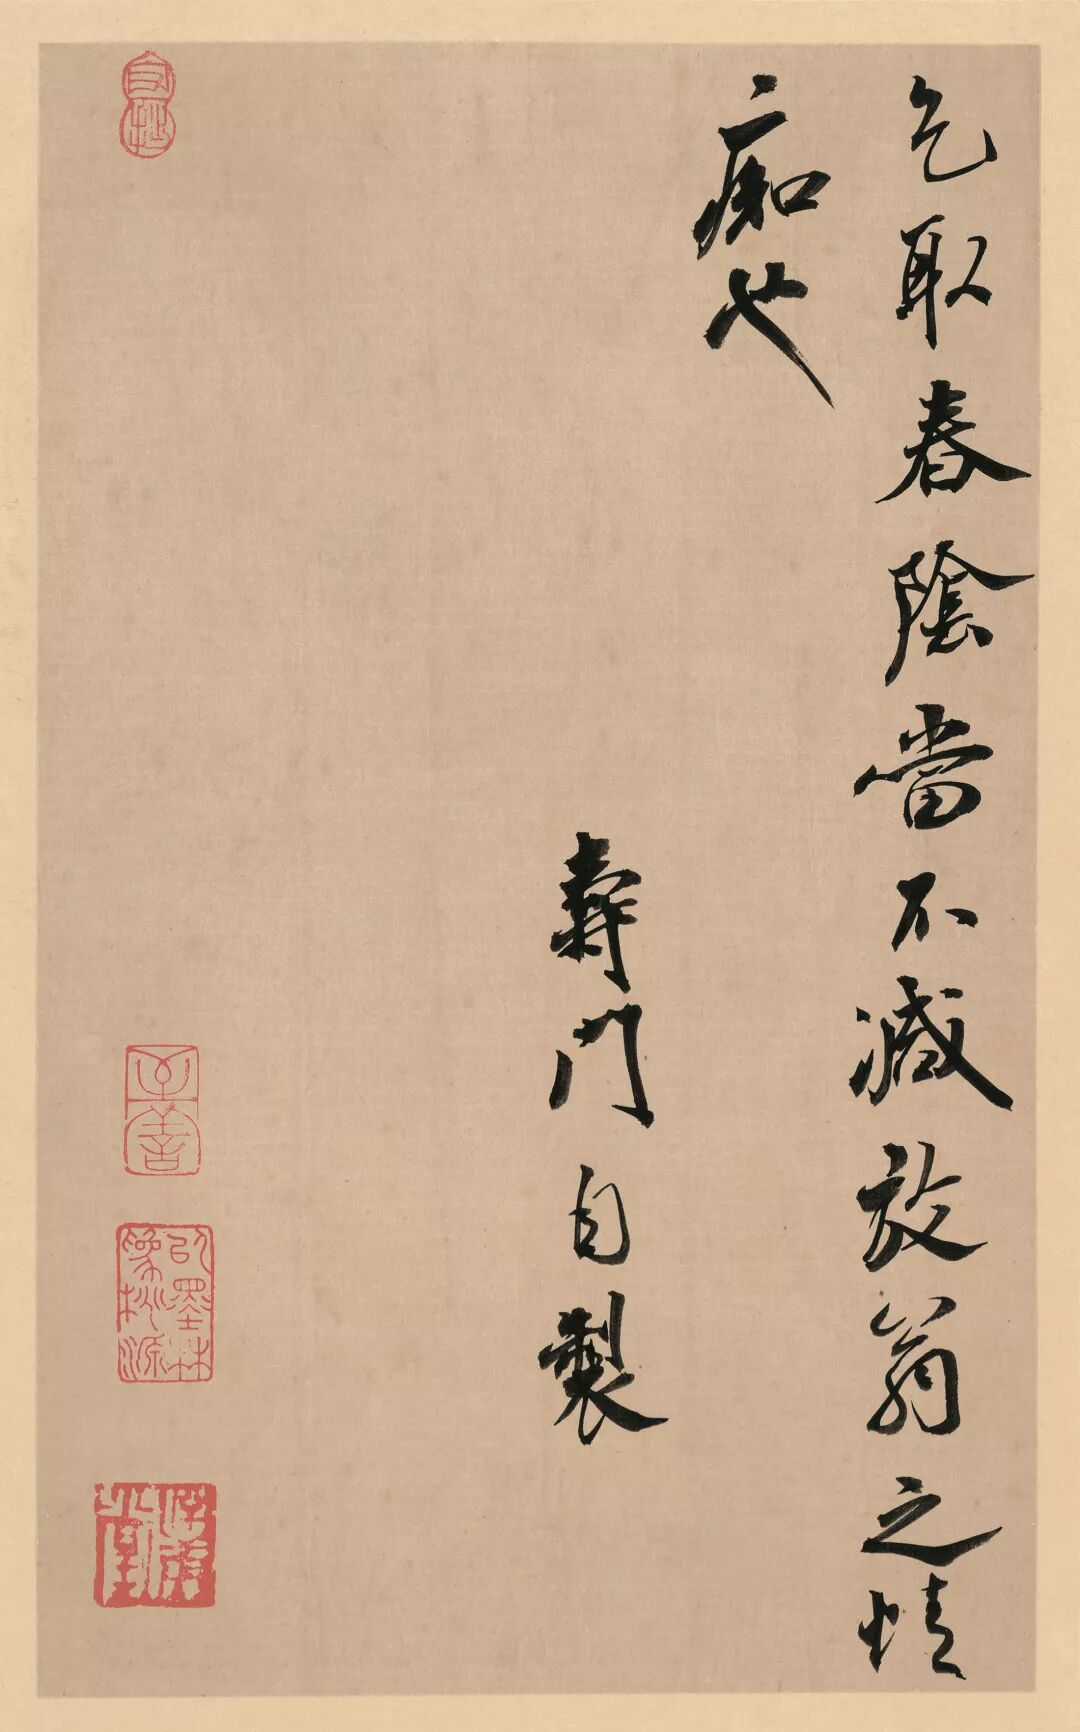 乞取春陰當不減放翁之情
痴也
壽門自製